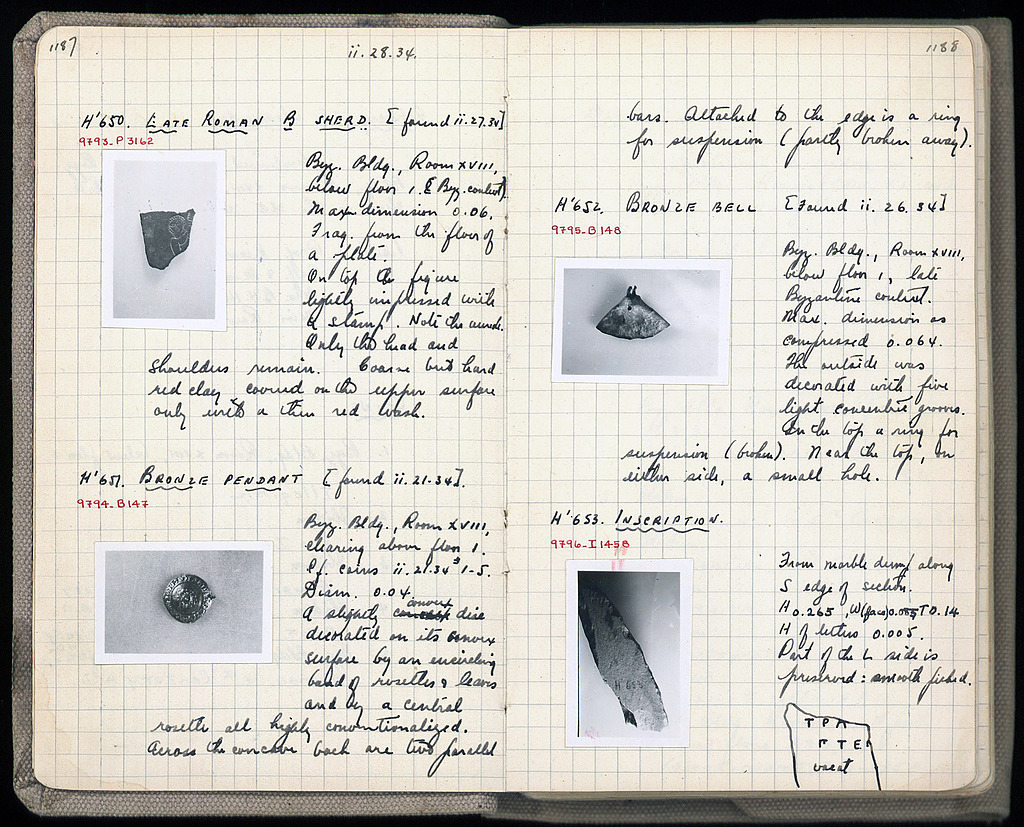 1187
ii.28.34.
H'650. LATE ROMAN B SHERD. [found ii.27.34]
9793-P 3162
Byz. Bldg., Room XVIII,
below floor 1. (Byz. context).
Max. dimension 0.06.
Frag. from the floor of
a plate.
On top the figure
lightly impressed with
a stamp. Note the
Only the head and
shoulders remain. Coarse but hard
red clay covered on the upper surface
only with a thin red wash.
H'651. BRONZE PENDANT [found ii.21.34].
9794-B147
Byz. Bldg., Room XVIII,
clearing above floor 1.
Cf. coins ii.21.34 1-5.
Diam. 0.04.
A slightly convex disc
decorated on its convex
surface by an encircling
band of rosettes & leaves
and by a central
rosette all highly conventionalized.
Across the concave back are two parallel
1188
bars. Attached to the edge is a ring
for suspension (partly broken away).
H'652. BRONZE BELL [Found ii.26.34]
9795-B 148
Byz. Bldg., Room XVIII,
below floor 1, late
Byzantine context.
Max. dimension as
compressed 0.064.
The outside was
decorated with five
light concentric grooves.
On the top a ring for
suspension (broken). Near the top, on
either side, a small hole.
H'653. INSCRIPTION.
9796-I 1458
From marble dump along
S edge of section.
H 0.265, W (face) 0.085 T 0.14
H of letters 0.005.
Part of the L side is
preserved: smooth picked.
H 653
ΤΡΑ
ΓΤΕ
vacat